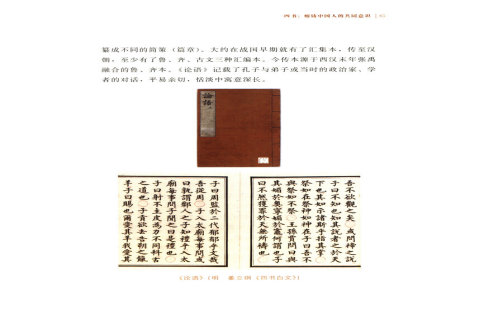 四书：凝铸中国人的共同意识 | 65
纂成不同的简策（篇章）。大约在战国早期就有了汇集本，传至汉
朝，至少有了鲁、齐、古文三种汇编本。今传本源于西汉末年张禹
融合的鲁、齐本。《论语》记载了孔子与弟子或当时的政治家、学
者的对话，平易亲切，恬淡中寓意深长。
論語
吾不欲觀之矣 或問禘之說
子曰不知也知其說者之於天
下也其如示諸斯乎指其掌
祭如在祭神如神在子曰吾不
與祭如不祭 王孫賈問曰與
其媚於奧寧媚於竈何謂也子
曰不然獲罪於天無所禱也
子曰周監於二代郁郁乎文哉
吾從周 子入太廟每事問或
曰孰謂鄹人之子知禮乎入太
廟每事問子聞之曰是禮也
子曰射不主皮為力不同科古
之道也 子貢欲去告朔之餼
羊子曰賜也爾愛其羊我愛其
《论语》（明 《四书白文》）